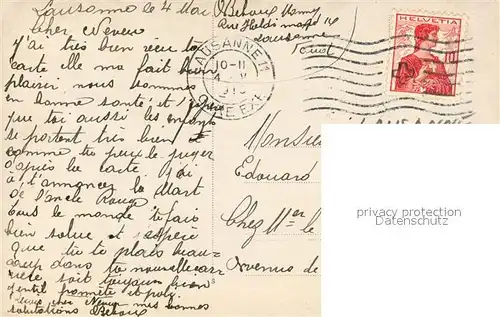 Lausanne le 4 Mai
Cher Neveu
J'ai très bien reçu ta
carte elle m'a fait bien
plaisir, nous sommes
en bonne santé et j'espère
que toi aussi les enfants
se portent très bien et
comme tu peux le juger
d'après la carte. J'ai
à t'annoncer la Mort
de l'oncle
tous le monde te fais
bien salue et j'espère
que tu te plais beau-
coup dans ta nouvelle car-
rière soit toujours bien
gentil honnête et poli
cher Neveu mes bonnes
salutations Betoux
Betoux
Rue Haldimand 14
Lausanne
LAUSANNE 11
10-11
EXP.
HELVETIA
10
Monsieur
Edouard
Chez Mer le
Avenue de
privacy protection
Datenschutz